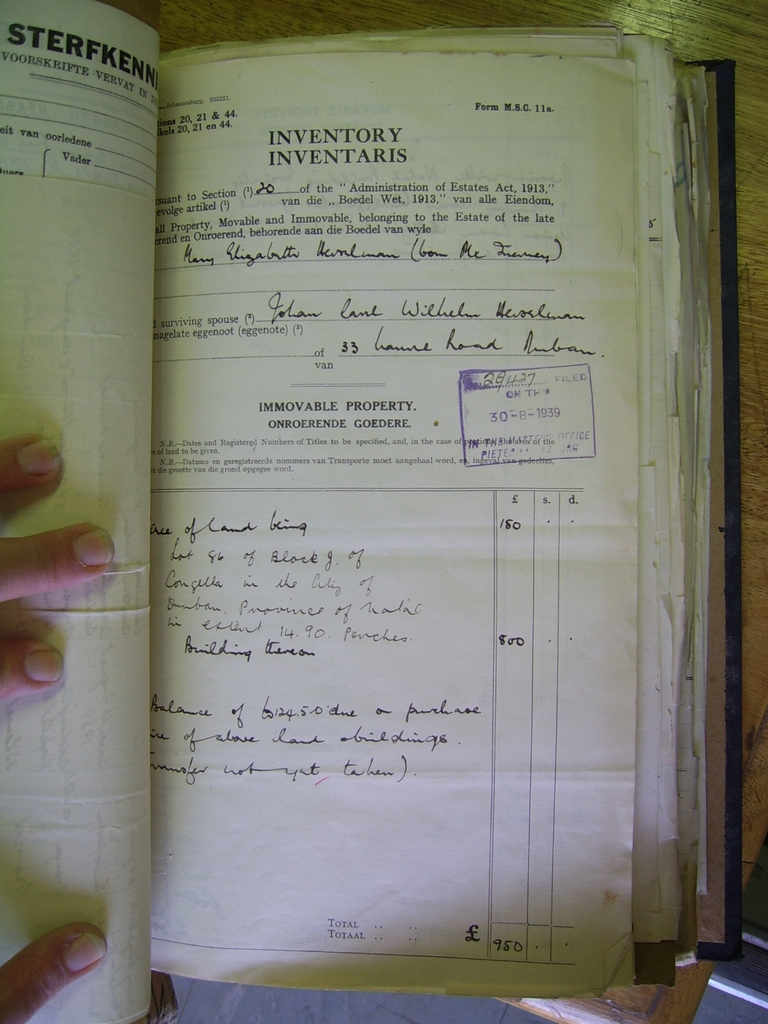 STERFKENNI
VOORSKRIFTE VERVAT IN
eit van oorledene
Vader
Form M.S.C. 11a.
tions 20, 21 & 44.
ikels 20, 21 en 44.
INVENTORY
INVENTARIS
suant to Section (¹) 20 of the "Administration of Estates Act, 1913,"
evolge artikel (¹) van die „Boedel Wet, 1913," van alle Eiendom,
all Property, Movable and Immovable, belonging to the Estate of the late
erend en Onroerend, behorende aan die Boedel van wyle
Mary Elizabeth (born Mc Tierney)
surviving spouse (²) Johan Carl Wilhelm
nagelate eggenoot (eggenote) (²)
of 33 Road Durban.
van
28427 FILED
ON THE
30-8-1939
IN THE MASTER'S OFFICE
IMMOVABLE PROPERTY.
ONROERENDE GOEDERE.
N.B.—Dates and Registered Numbers of Titles to be specified, and, in the case of
of land to be given.
N.B.—Datums en geregistreerde nommers van Transporte moet aangehaal word, en, ingeval van gedeeltes,
die grootte van die grond opgegee word.
£ s. d.
of land being 150 . .
Lot 86 of Block J. of
Congella in the City of
Durban, Province of Natal
in extent 14.90. Perches.
Building thereon 800 . .
Balance of £124.5.0 due on purchase
of above land & buildings.
Transfer not yet taken).
TOTAL .. ..
TOTAAL .. .. £ 950 . .